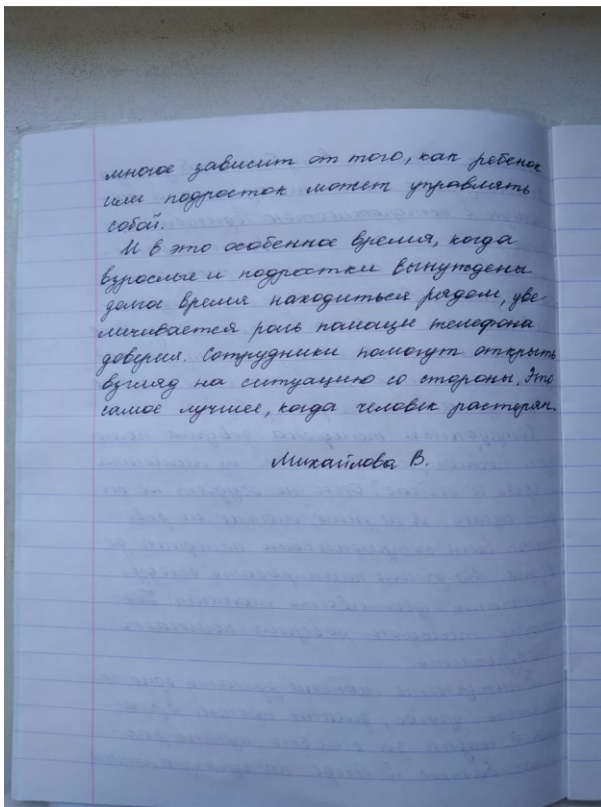 многое зависит от того, как ребенок
или подросток может управлять
собой.
И в это особенное время, когда
взрослые и подростки вынуждены
долго время находиться рядом, уве-
личивается роль помощи телефона
доверия. Сотрудники помогут открыть
взгляд на ситуацию со стороны. Это
самое лучшее, когда человек растерян.
Михайлова В.